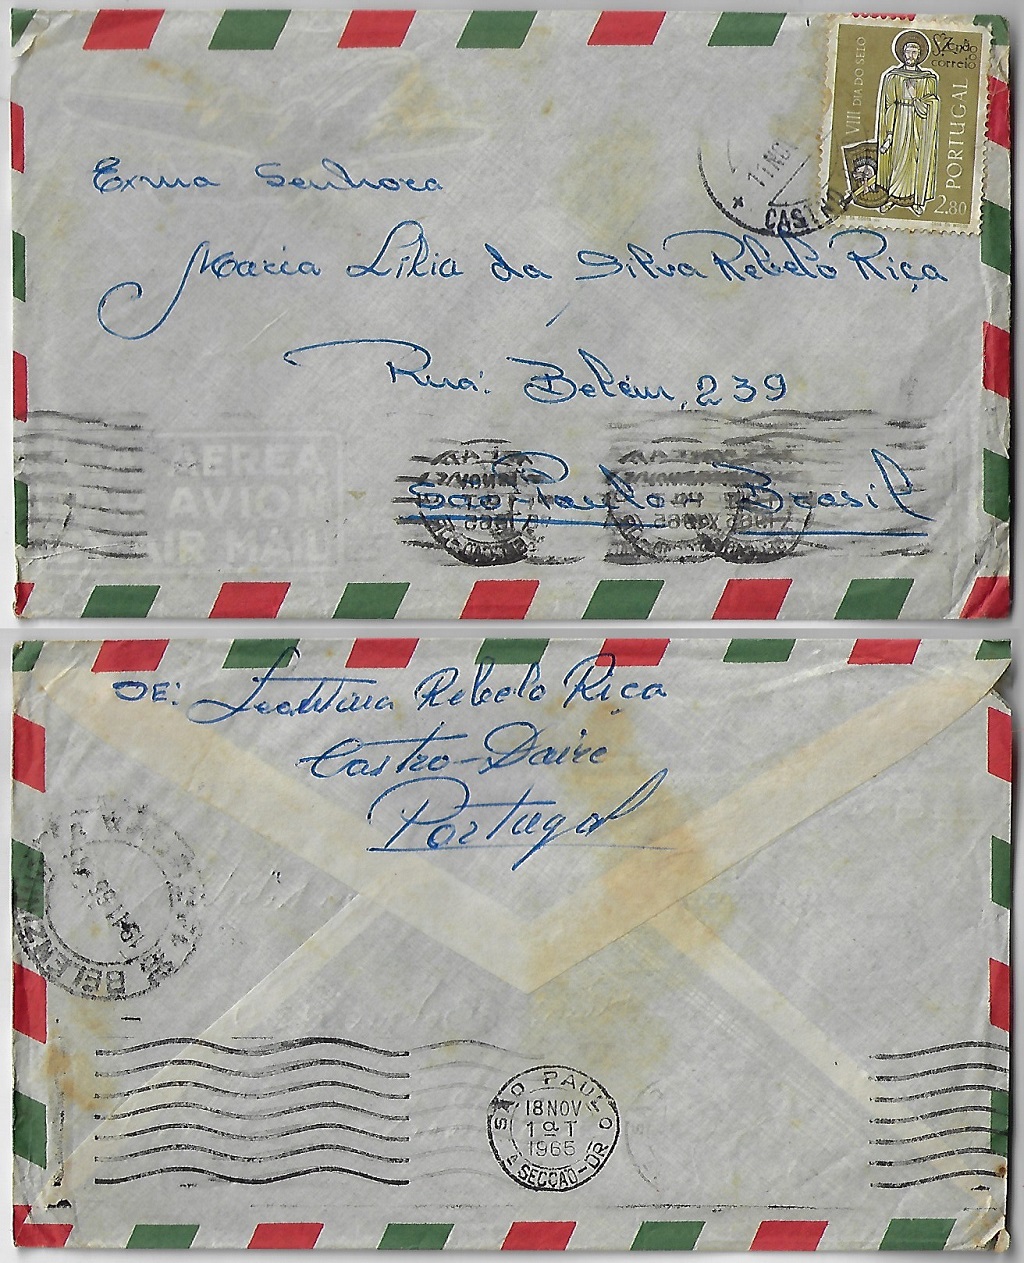 VIII DIA DO SELO
S. Zenão
correio
PORTUGAL
2.80
11 NOV
CASTRO
Exma Senhora
Maria Lília da Silva Rebelo Riça
Rua: Belém, 239
São Paulo Brasil
AEREA
AVION
AIR MAIL
DE: Leontina Rebelo Riça
Castro-Daire
Portugal
BELENZ
SÃO PAULO
18 NOV
1ª T
1965
SECÇÃO-DR